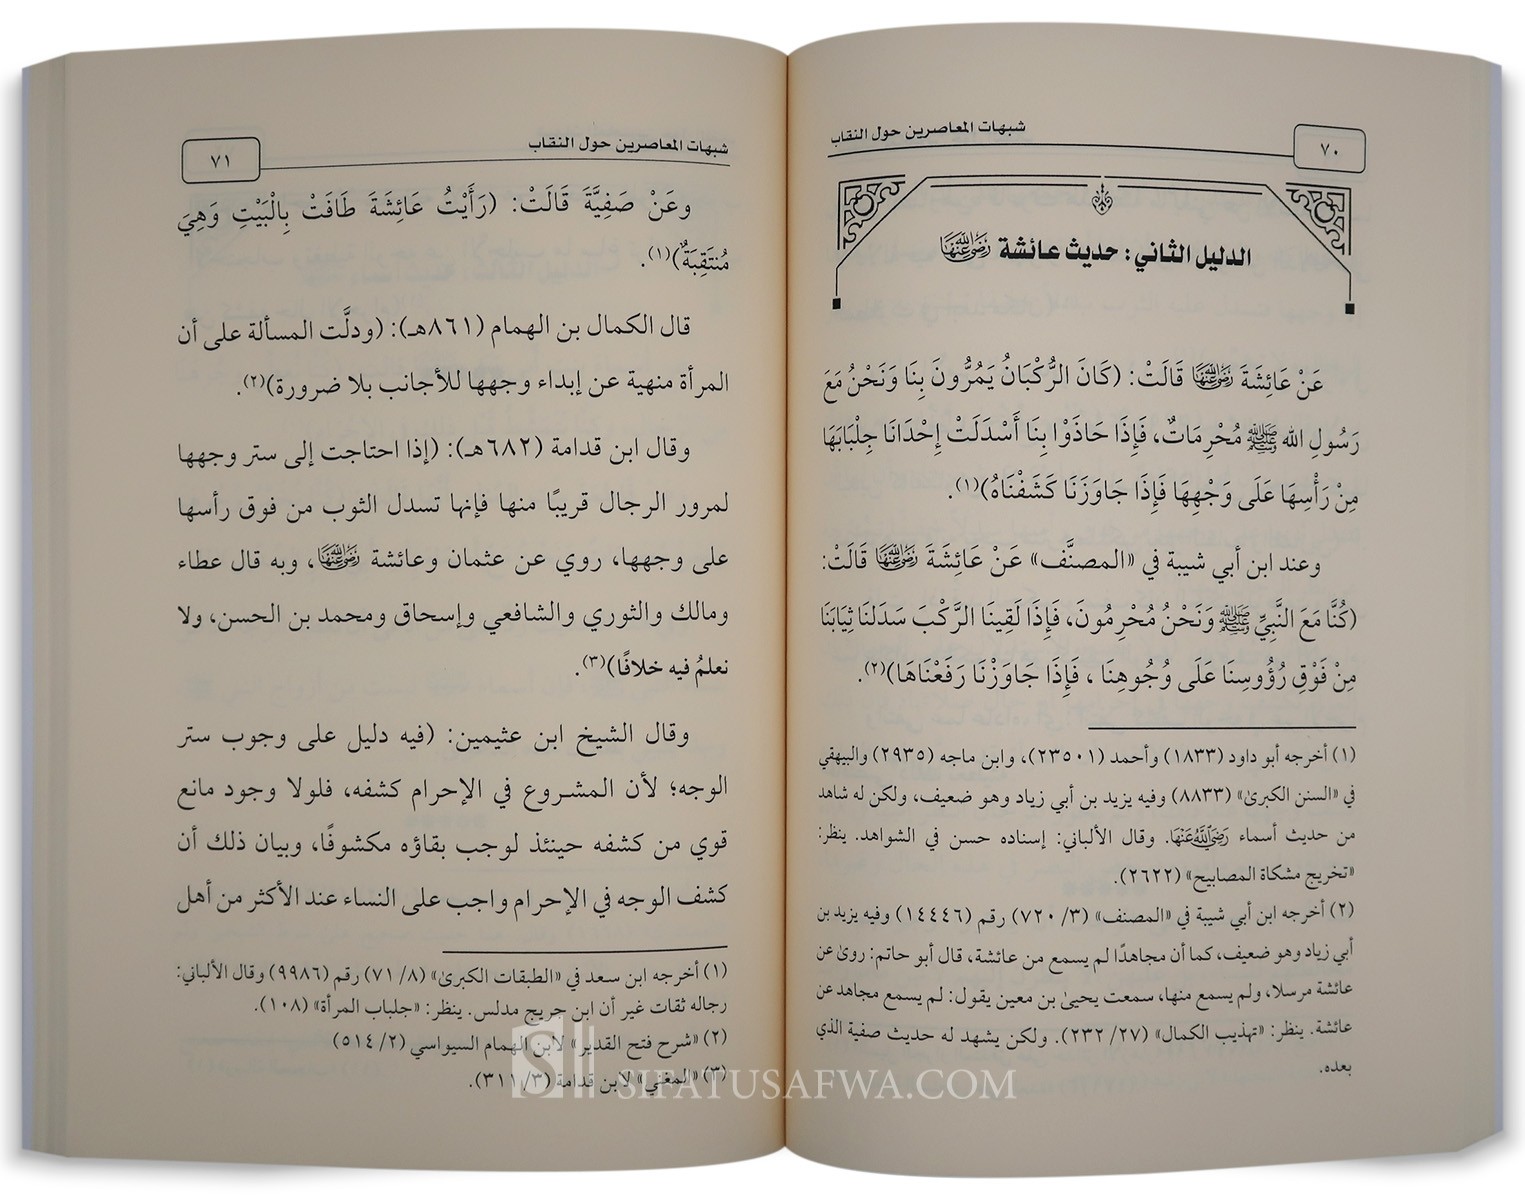 شبهات المعاصرين حول النقاب
٧٠
الدليل الثاني: حديث عائشة رَضِيَ اللَّهُ عَنْهَا
عَنْ عَائِشَةَ رَضِيَ اللَّهُ عَنْهَا قَالَتْ: (كَانَ الرُّكْبَانُ يَمُرُّونَ بِنَا وَنَحْنُ مَعَ
رَسُولِ الله ﷺ مُحْرِمَاتٌ، فَإِذَا حَاذَوْا بِنَا أَسْدَلَتْ إِحْدَانَا جِلْبَابَهَا
مِنْ رَأْسِهَا عَلَى وَجْهِهَا فَإِذَا جَاوَزَنَا كَشَفْنَاهُ)(١).
وعند ابن أبي شيبة في «المصنَّف» عَنْ عَائِشَةَ رَضِيَ اللَّهُ عَنْهَا قَالَتْ:
(كُنَّا مَعَ النَّبِيِّ ﷺ وَنَحْنُ مُحْرِمُونَ، فَإِذَا لَقِيَنَا الرَّكْبَ سَدَلْنَا ثِيَابَنَا
مِنْ فَوْقِ رُؤُوسِنَا عَلَى وُجُوهِنَا، فَإِذَا جَاوَزْنَا رَفَعْنَاهَا)(٢).
(١) أخرجه أبو داود (١٨٣٣) وأحمد (٢٣٥٠١)، وابن ماجه (٢٩٣٥) والبيهقي
في «السنن الكبرىٰ» (٨٨٣٣) وفيه يزيد بن أبي زياد وهو ضعيف، ولكن له شاهد
من حديث أسماء رَضِيَ اللَّهُ عَنْهَا. وقال الألباني: إسناده حسن في الشواهد. ينظر:
«تخريج مشكاة المصابيح» (٢٦٢٢).
(٢) أخرجه ابن أبي شيبة في «المصنف» (٣/ ٧٢٠) رقم (١٤٤٤٦) وفيه يزيد بن
أبي زياد وهو ضعيف، كما أن مجاهدًا لم يسمع من عائشة، قال أبو حاتم: روىٰ عن
عائشة مرسلا، ولم يسمع منها، سمعت يحيىٰ بن معين يقول: لم يسمع مجاهد عن
عائشة. ينظر: «تهذيب الكمال» (٢٧/ ٢٣٢). ولكن يشهد له حديث صفية الذي
بعده.
شبهات المعاصرين حول النقاب
٧١
وعَنْ صَفِيَّةَ قَالَتْ: (رَأَيْتُ عَائِشَةَ طَافَتْ بِالْبَيْتِ وَهِيَ
مُنتَقِبَةٌ)(١).
قال الكمال بن الهمام (٨٦١هـ): (ودلَّت المسألة على أن
المرأة منهية عن إبداء وجهها للأجانب بلا ضرورة)(٢).
وقال ابن قدامة (٦٨٢هـ): (إذا احتاجت إلى ستر وجهها
لمرور الرجال قريبًا منها فإنها تسدل الثوب من فوق رأسها
على وجهها، روي عن عثمان وعائشة رَضِيَ اللَّهُ عَنْهَا، وبه قال عطاء
ومالك والثوري والشافعي وإسحاق ومحمد بن الحسن، ولا
نعلمُ فيه خلافًا)(٣).
وقال الشيخ ابن عثيمين: (فيه دليل على وجوب ستر
الوجه؛ لأن المشروع في الإحرام كشفه، فلولا وجود مانع
قوي من كشفه حينئذ لوجب بقاؤه مكشوفًا، وبيان ذلك أن
كشف الوجه في الإحرام واجب على النساء عند الأكثر من أهل
(١) أخرجه ابن سعد في «الطبقات الكبرىٰ» (٨/ ٧١) رقم (٩٩٨٦) وقال الألباني:
رجاله ثقات غير أن ابن جريج مدلس. ينظر: «جلباب المرأة» (١٠٨).
(٢) «شرح فتح القدير» لابن الهمام السيواسي (٢/ ٥١٤)
(٣) «المغني» لابن قدامة (٣/ ٣١١).
SIFATUSAFWA.COM